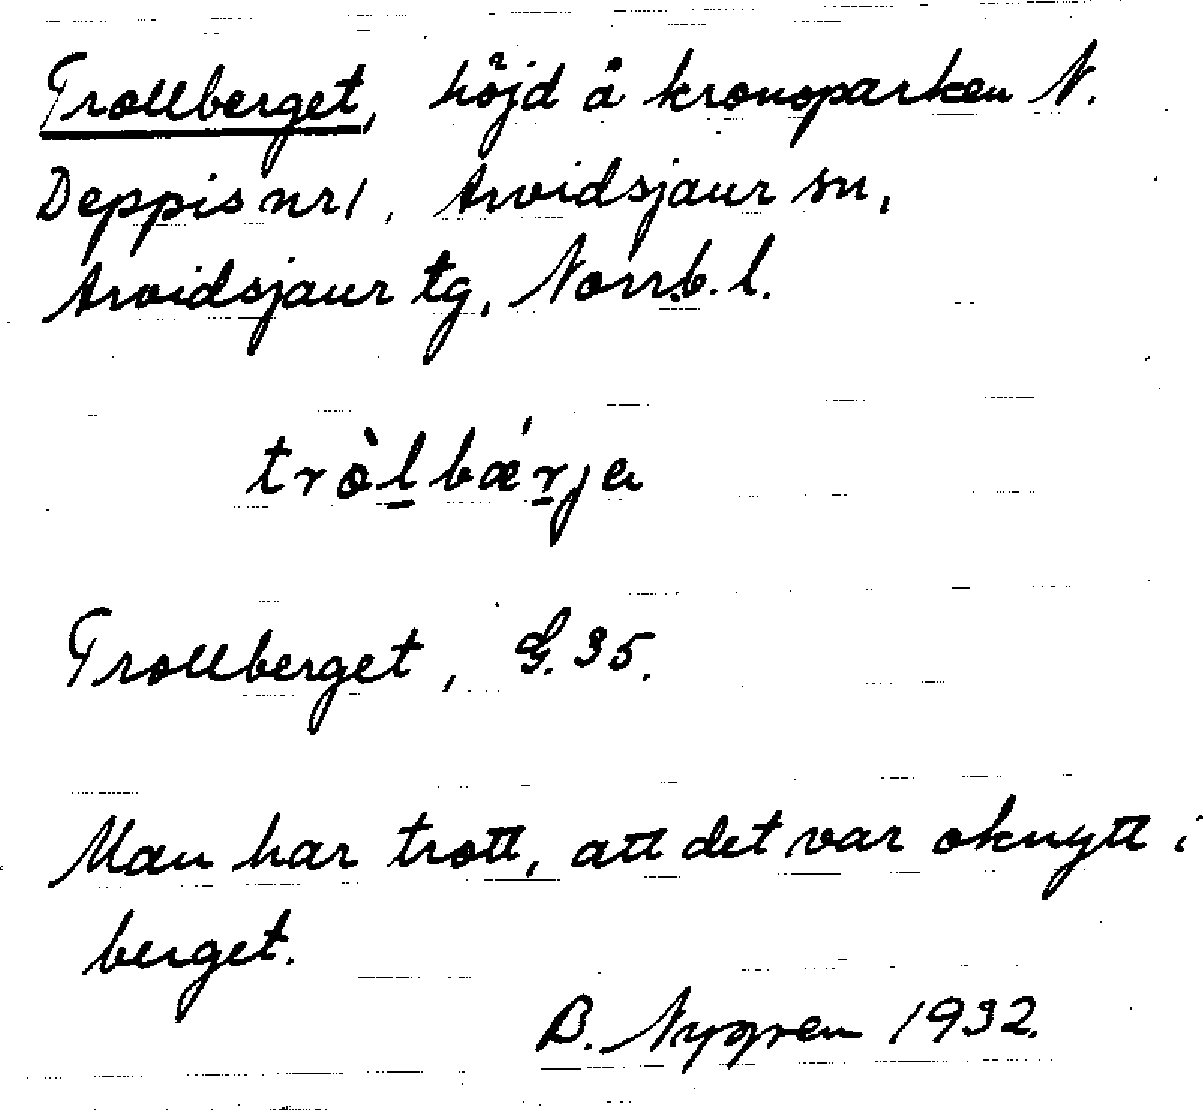 Trollberget, höjd å kronoparken N.
Deppis nr 1, Arvidsjaur sn,
Arvidsjaur tg, Norrb. l.
tròl̠bǽr̠ja
Trollberget, G. 35.
Man har trott, att det var oknytt i
berget.
B. Nygren 1932.